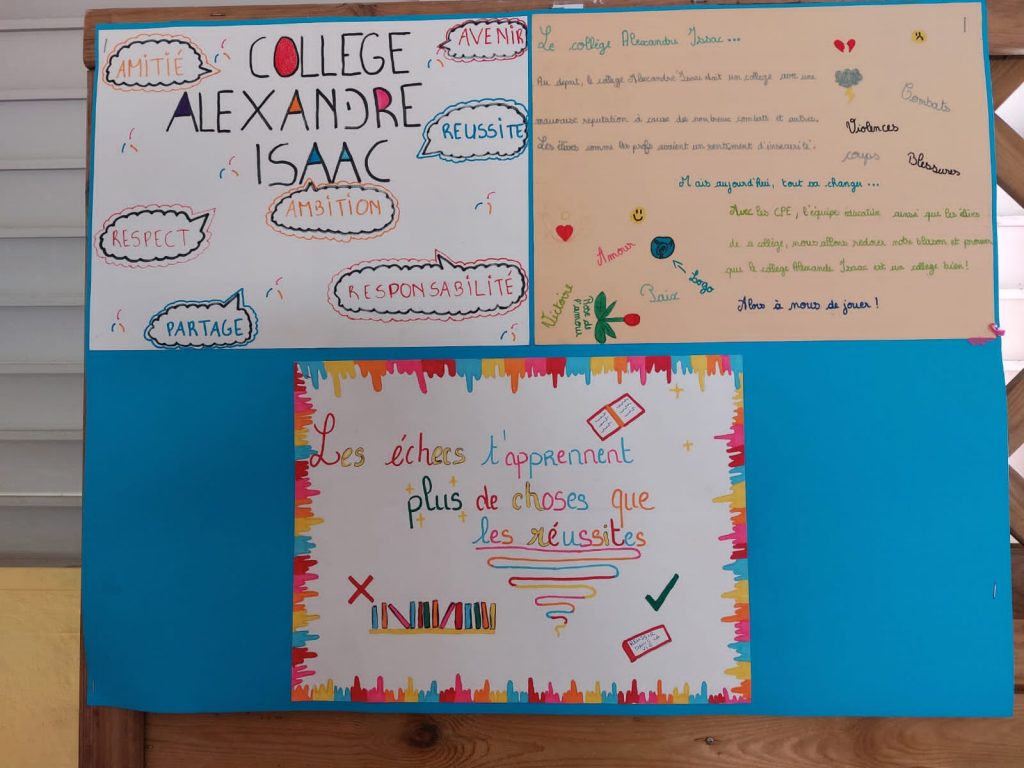 COLLEGE
ALEXANDRE
ISAAC
AMITIÉ
AVENIR
REUSSITE
AMBITION
RESPECT
RESPONSABILITÉ
PARTAGE
Le collège Alexandre Issac...
Au depart, le college Alexandre Issac était un college avec une
mauvaise reputation à cause de nombreux combats et autres.
Les élèves comme les profs avaient un sentiment d'insecurité.
Combats
Violences
coups
Blessures
Mais aujourd'hui, tout va changer...
Avec les CPE, l'équipe éducative ainsi que les élèves
de ce collège, nous allons redorer notre blason et prouver
que le college Alexandre Issac est un collège bien!
Alors à nous de jouer!
Amour
Logo
Paix
Victoire
Rose de
l'amour
Les échecs t'apprennent
plus de choses que
les réussites